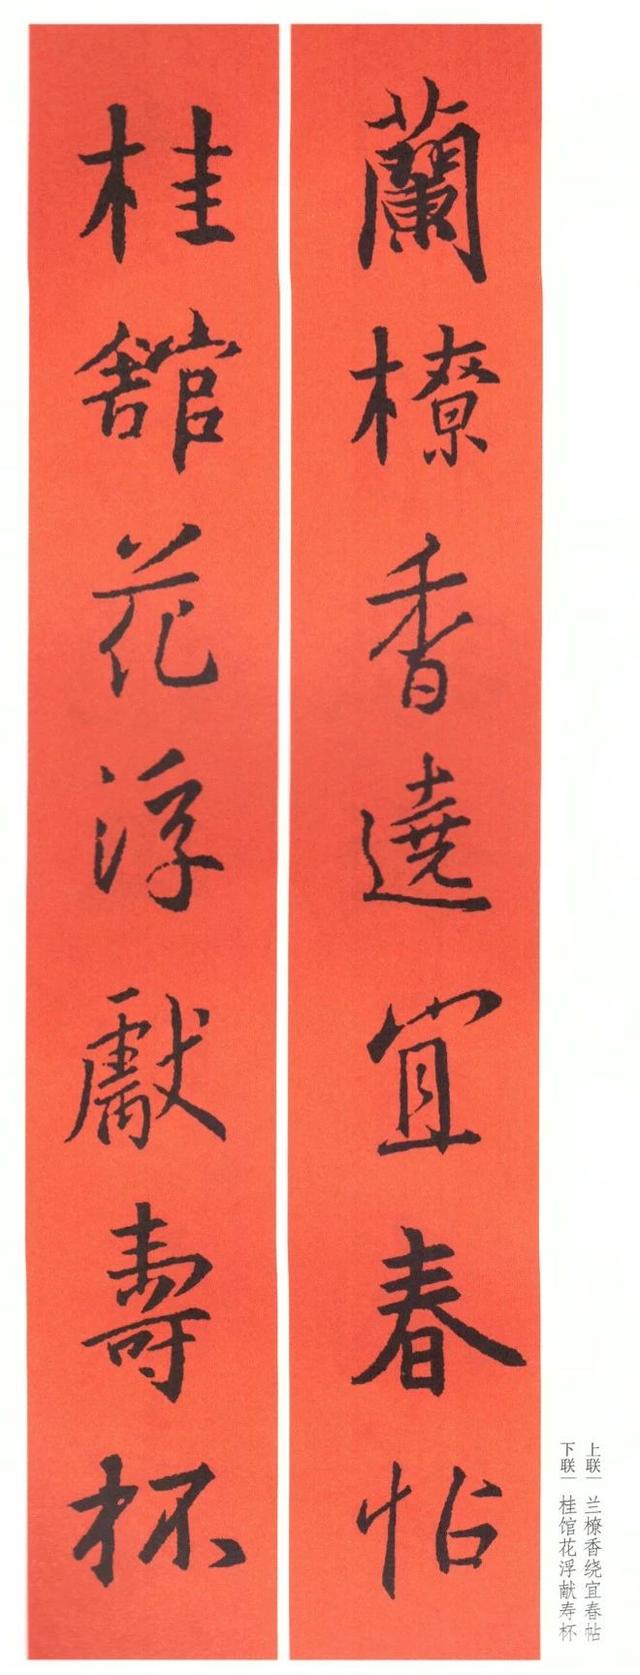 蘭橑香遶宜春帖
桂舘花浮獻壽杯
上联｜兰橑香绕宜春帖
下联｜桂馆花浮献寿杯